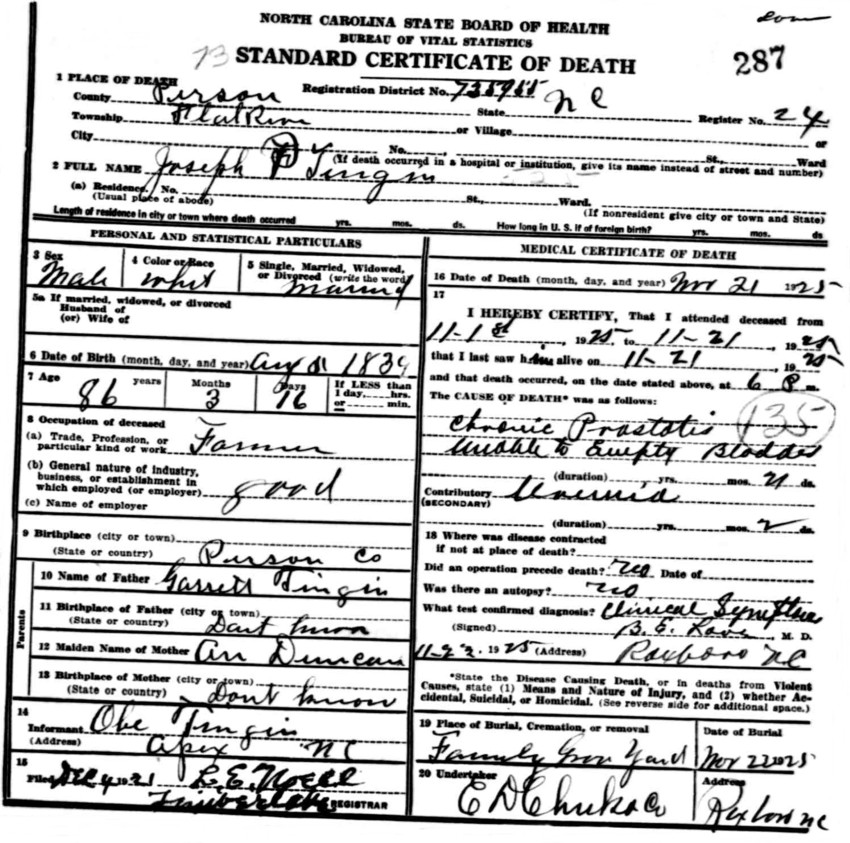 NORTH CAROLINA STATE BOARD OF HEALTH
BUREAU OF VITAL STATISTICS
STANDARD CERTIFICATE OF DEATH
287
1 PLACE OF DEATH
Registration District No. 
County Person State N C Register No. 24
Township Flat River or Village or
City No. St., Ward
(If death occurred in a hospital or institution, give its name instead of street and number)
2 FULL NAME Joseph P Tingin
(a) Residence. No. St., Ward.
(Usual place of abode) (If nonresident give city or town and State)
Length of residence in city or town where death occurred yrs. mos. ds. How long in U. S. if of foreign birth? yrs. mos. ds.
PERSONAL AND STATISTICAL PARTICULARS
3 Sex 4 Color or Race 5 Single, Married, Widowed, or Divorced (write the word)
Male whit married
5a If married, widowed, or divorced
Husband of
(or) Wife of
6 Date of Birth (month, day, and year) Aug 1839
7 Age 86 years Months 3 Days 16 If LESS than 1 day, hrs. or min.
8 Occupation of deceased
(a) Trade, Profession, or particular kind of work Farmer
(b) General nature of industry, business, or establishment in which employed (or employer) good
(c) Name of employer
9 Birthplace (city or town)
(State or country) Person Co
Parents
10 Name of Father Garrett Tingin
11 Birthplace of Father (city or town)
(State or country) Dont know
12 Maiden Name of Mother Ann Duncan
13 Birthplace of Mother (city or town)
(State or country) Dont know
14
Informant Obe Tingin
(Address) Apex NC
15
Filed Dec 4 1921 L. E. Noell
Timberlake REGISTRAR
MEDICAL CERTIFICATE OF DEATH
16 Date of Death (month, day, and year) Nov 21 1925
17
I HEREBY CERTIFY, That I attended deceased from
11-1st, 1925, to 11-21, 1925
that I last saw him alive on 11-21, 1925
and that death occurred, on the date stated above, at 6 P m.
The CAUSE OF DEATH* was as follows:
135
Chronic Prostatis
Unable to Empty Bladder
(duration) yrs. mos. 21 ds.
Contributory Uremia
(SECONDARY)
(duration) yrs. mos. 2 ds.
18 Where was disease contracted
if not at place of death?
Did an operation precede death? no Date of
Was there an autopsy? no
What test confirmed diagnosis? Clinical Symptoms
(Signed) B. E. Love, M. D.
11-22, 1925 (Address) Roxboro NC
*State the Disease Causing Death, or in deaths from Violent
Causes, state (1) Means and Nature of Injury, and (2) whether Ac-
cidental, Suicidal, or Homicidal. (See reverse side for additional space.)
19 Place of Burial, Cremation, or removal Date of Burial
Family Grave Yard Nov 22 1925
20 Undertaker Address
Roxboro NC